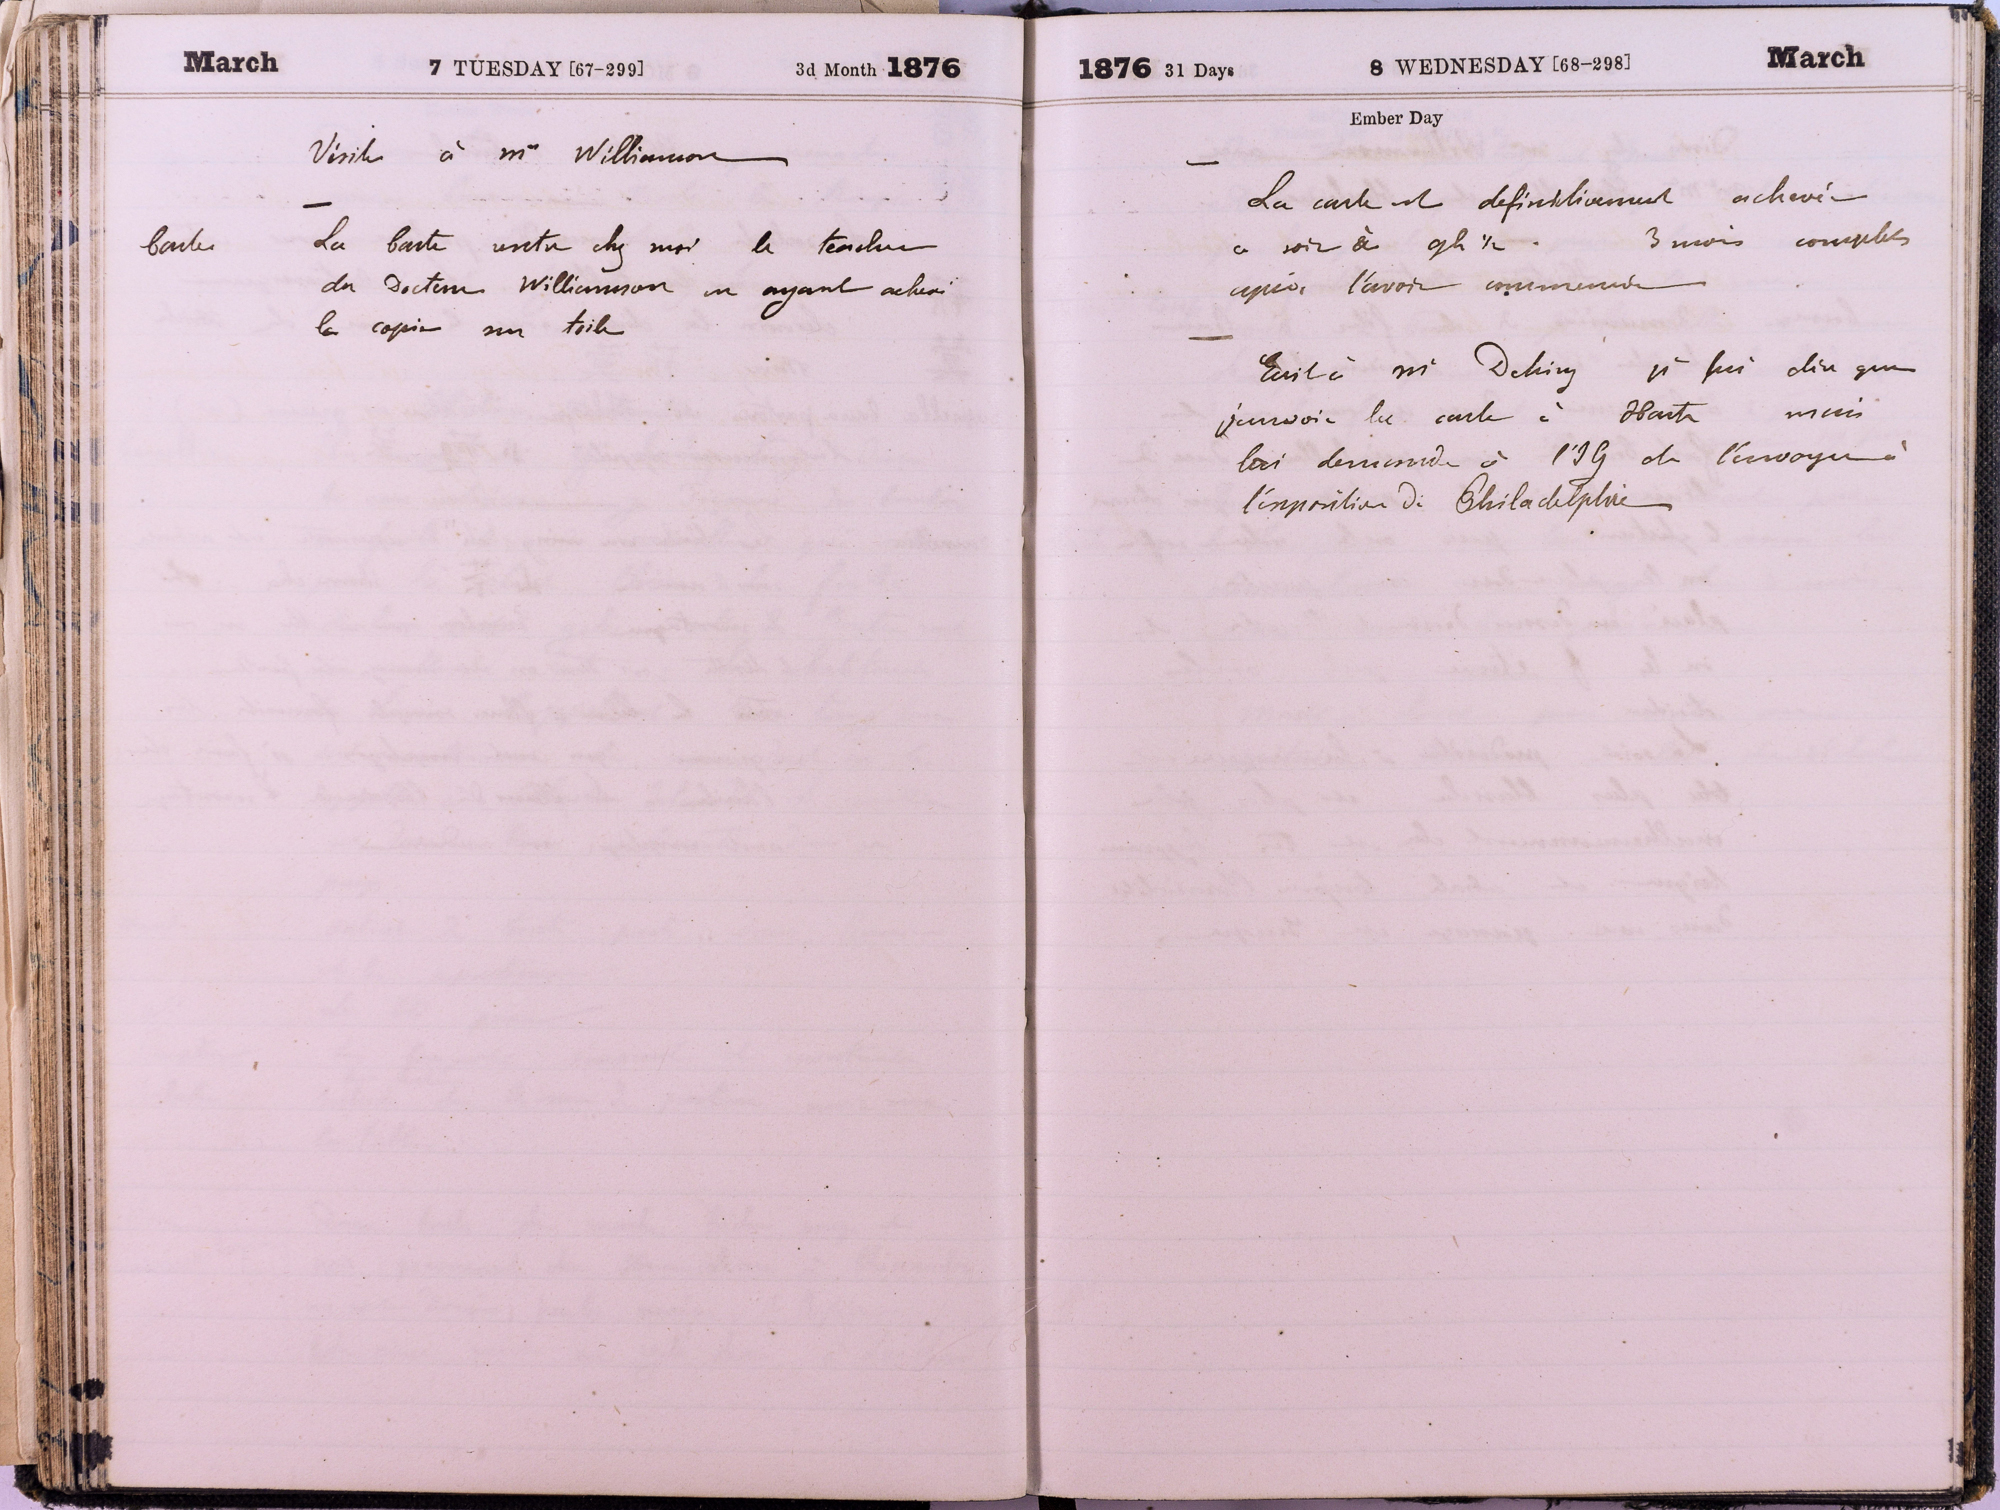 March 7 TUESDAY [67-299] 3d Month 1876
Visite à Mr Williamson
Carte
La Carte rentre chez moi le teacher
du Docteur Williamson en ayant achevé
la copie sur toile
1876 31 Days 8 WEDNESDAY [68-298] March
Ember Day
La carte est définitivement achevée
ce soir à 9h ½. 3 mois complets
après l'avoir commencée
Ecrit à Mr je lui dis que
j'envoie la carte à Harte mais
lui demande à l'IG de l'envoyer à
l'exposition de Philadelphie